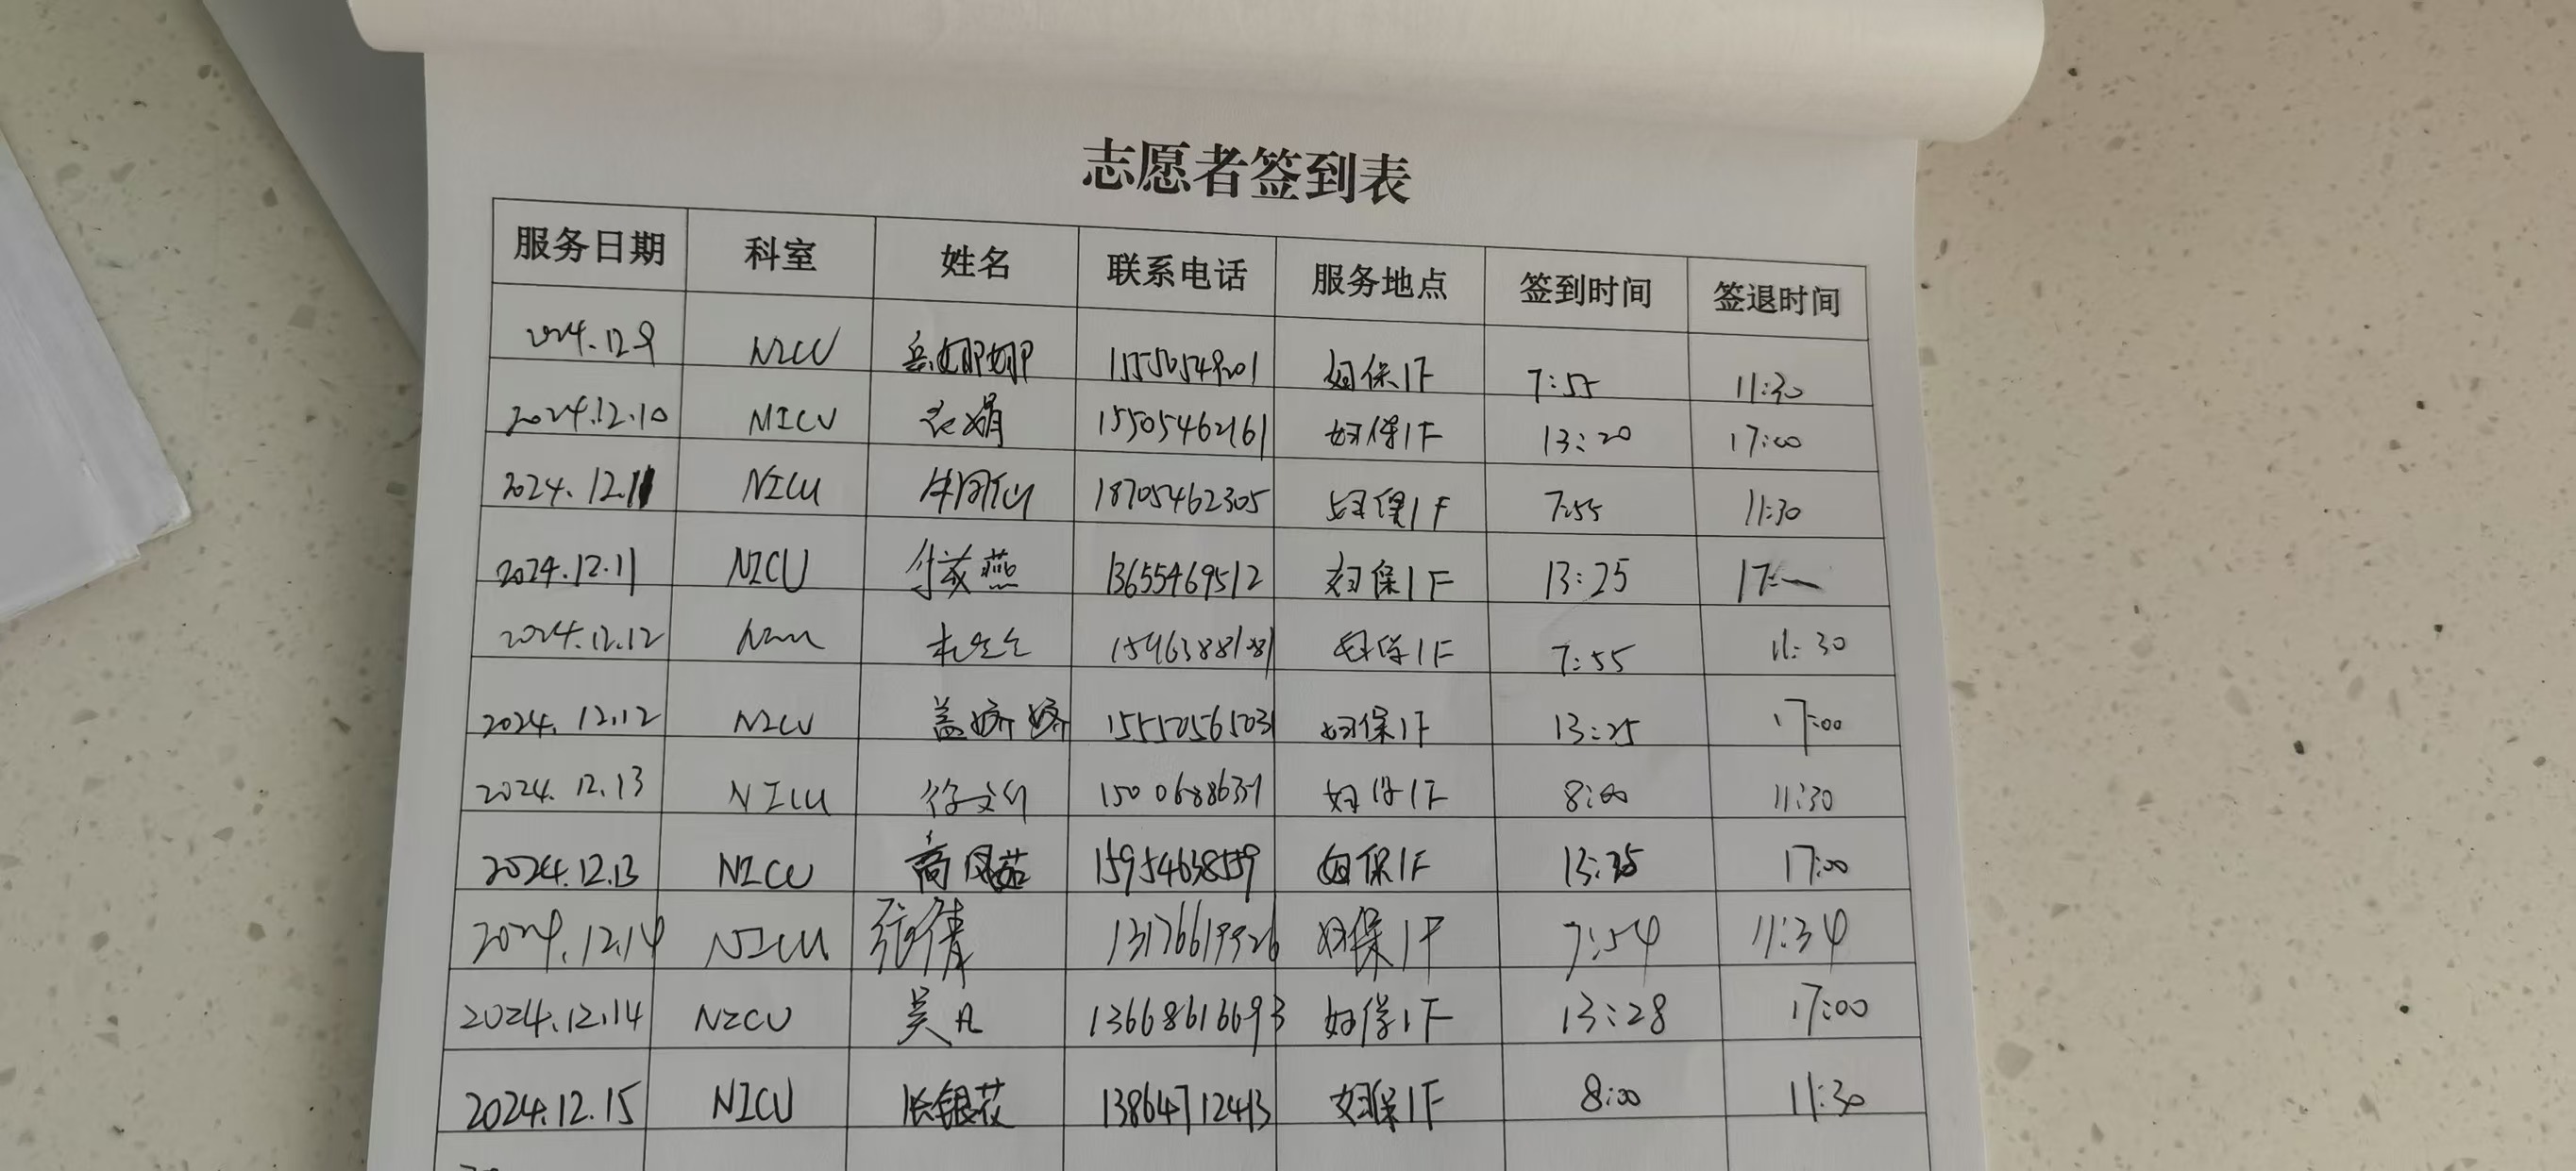 志愿者签到表
服务日期 科室 姓名 联系电话 服务地点 签到时间 签退时间
2024.12.9 NICU 岳娜娜 15550549201 妇保1F 7:55 11:30
2024.12.10 NICU 娟 15505462161 妇保1F 13:20 17:00
2024.12.11 NICU 18705462305 妇保1F 7:55 11:30
2024.12.11 NICU 燕 13655469512 妇保1F 13:25 17:
2024.12.12 妇保1F 7:55 11:30
2024.12.12 NICU 盖娇娇 妇保1F 13:25 17:00
2024.12.13 NICU 徐文 妇保1F 8:00 11:30
2024.12.13 NICU 高凤茹 妇保1F 17:00
2024.12.14 NICU 张倩 妇保1F 7:54 11:34
2024.12.14 NICU 吴凡 13668616693 妇保1F 13:28 17:00
2024.12.15 NICU 张银花 13864712413 妇保1F 8:00 11:30